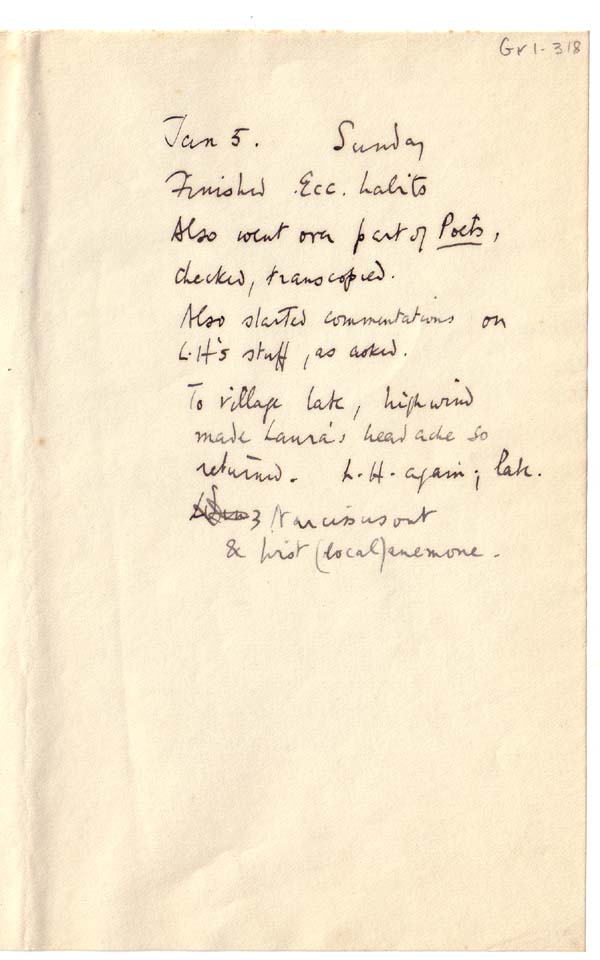 Gr1-318
Jan 5. Sunday
Finished Ecc. habits
Also went over part of Poets,
checked, transcopied.
Also started commentations on
L.H's stuff, as asked.
To village late, high wind
made Laura's head ache so
returned. L.H. again; late.
3 Narcissus out
& first (local) anemone.